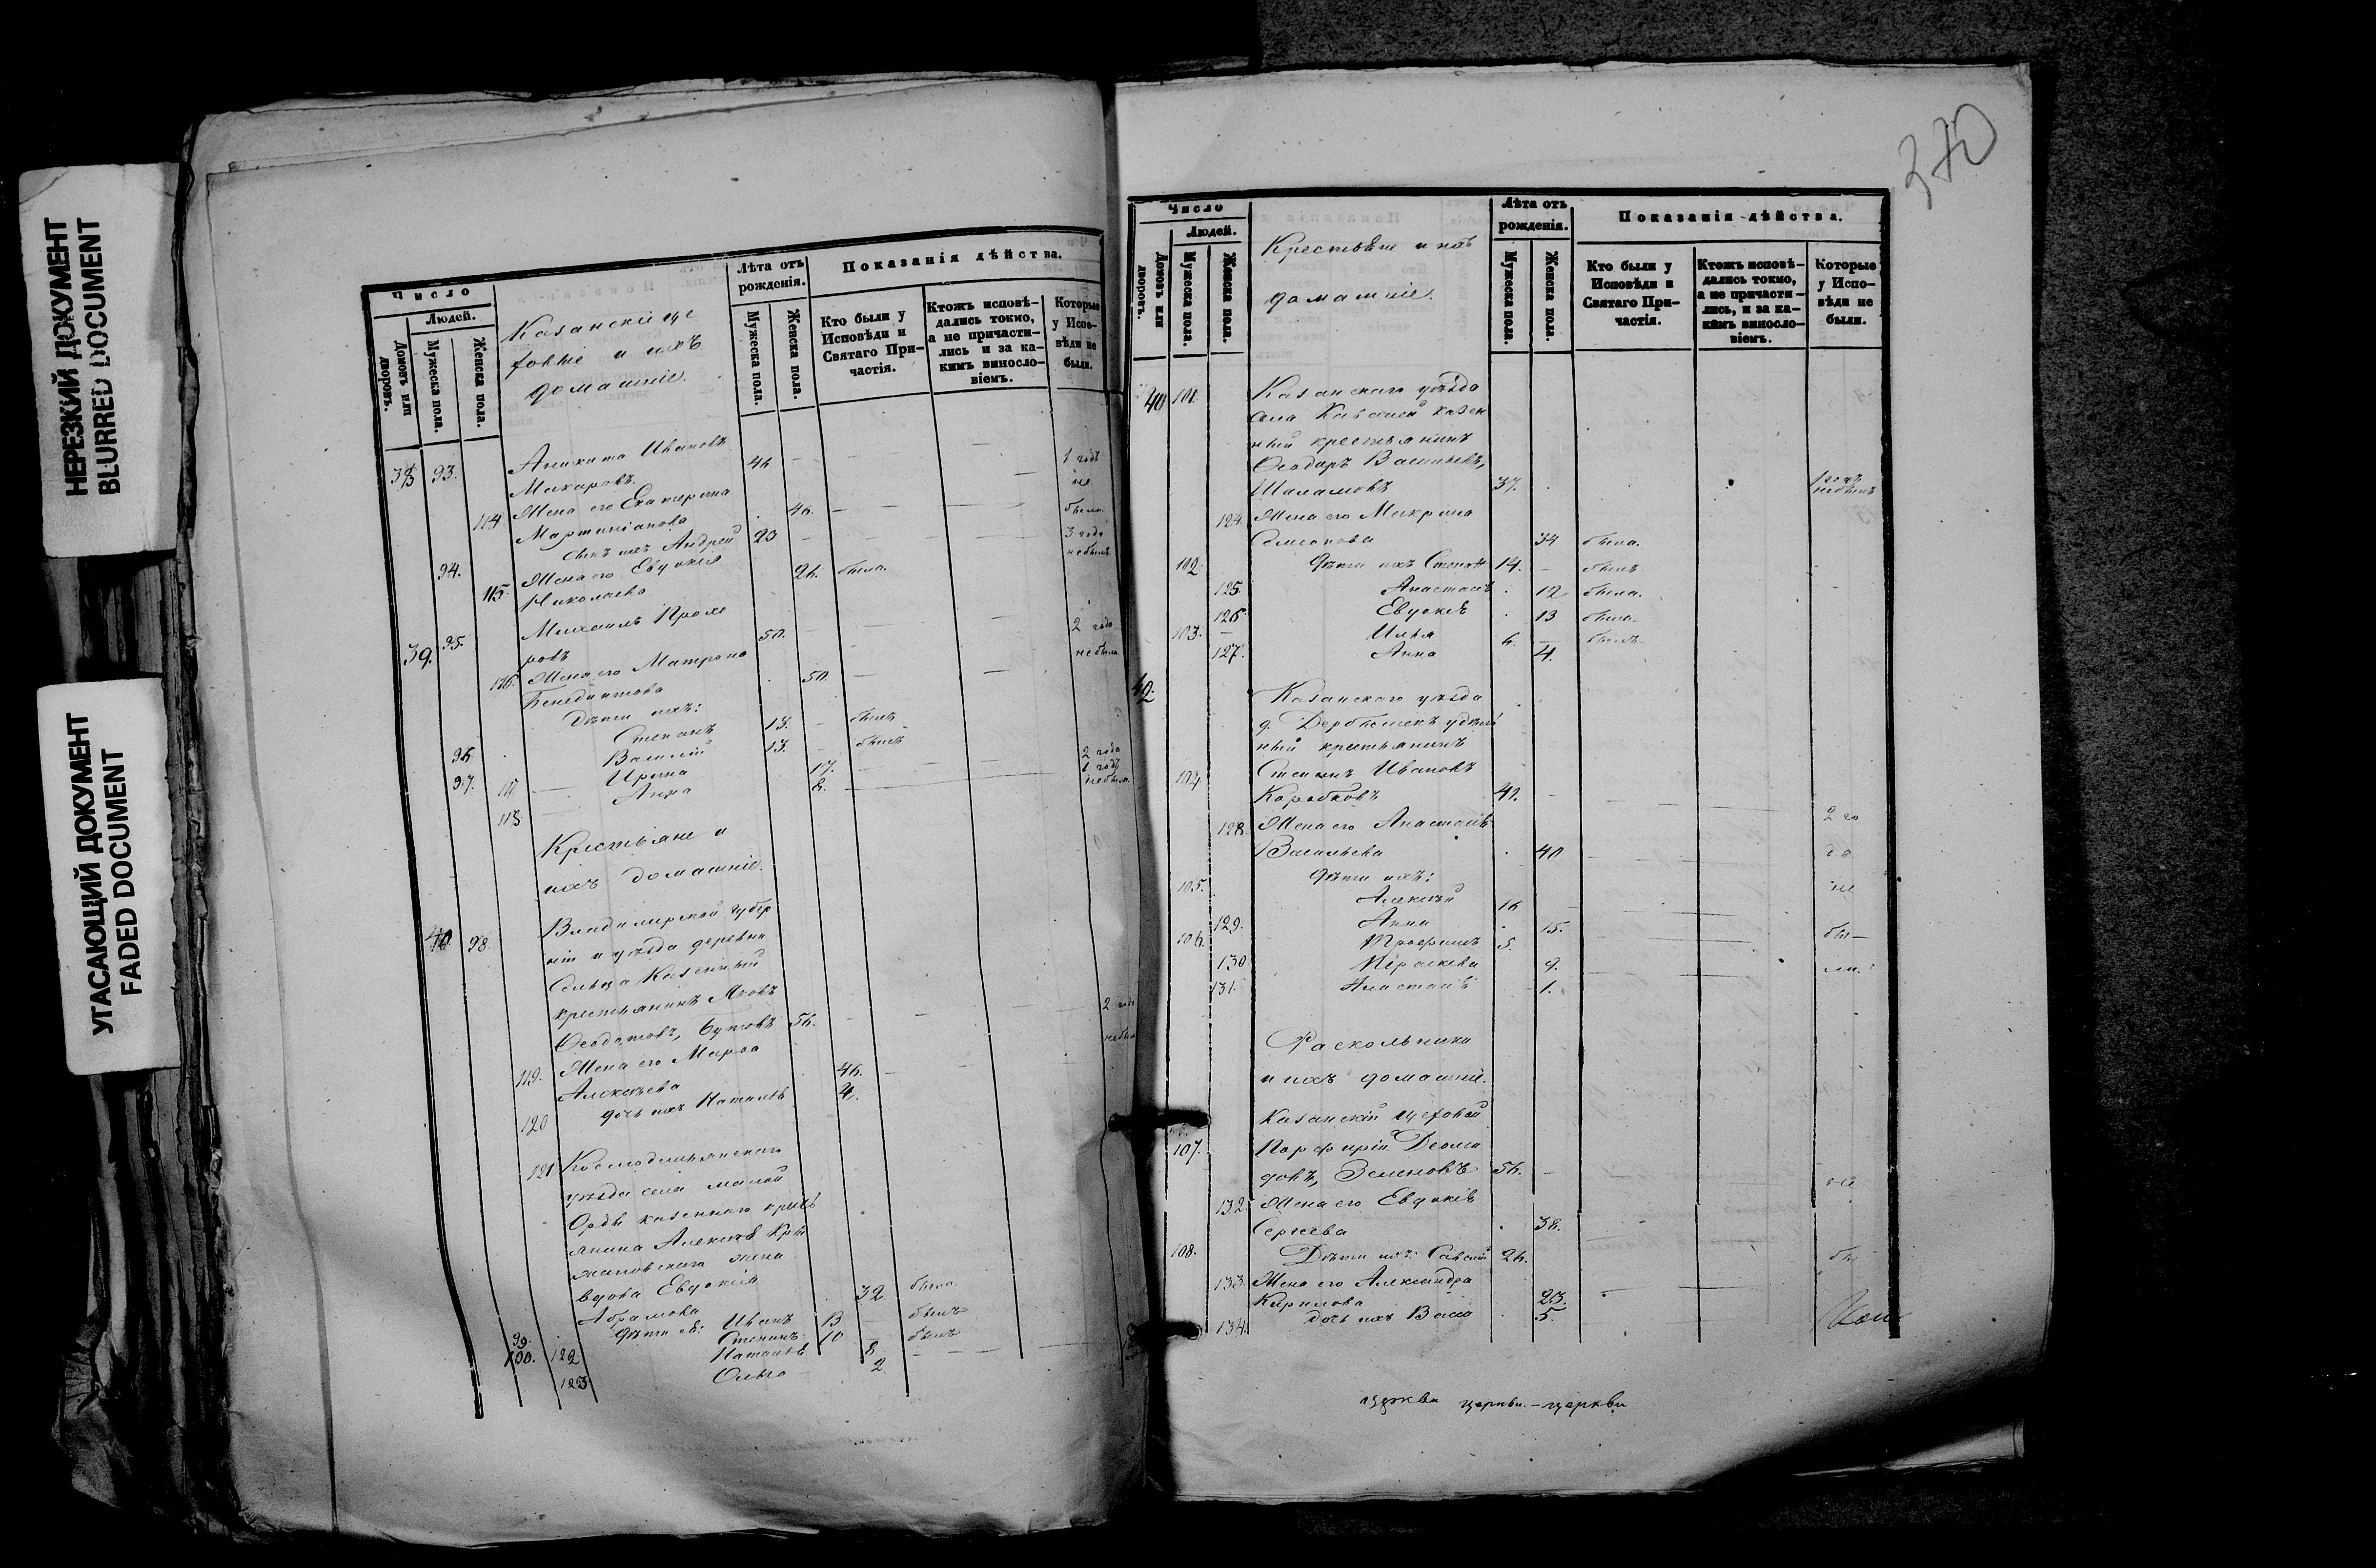 НЕРЕЗКИЙ ДОКУМЕНТ
BLURRED DOCUMENT
УГАСАЮЩИЙ ДОКУМЕНТ
FADED DOCUMENT
Число
Людей.
Домовъ или дворовъ.
Мужеска пола.
Женска пола.
Казанскіе це
ховые и ихъ
домашніе.
Лѣта отъ рожденія.
Мужеска пола.
Женска пола.
Показанія дѣйства.
Кто были у Исповѣди и Святаго Причастія.
Ктожъ исповѣ-
дались токмо,
а не причасти-
лись и за ка-
кимъ винosло-
віемъ.
Которые
у Испо-
вѣди не
были.
38 93. Аникита Ивановъ
Макаровъ. 46 1 годъ
не
114 Жена его Екатерина
Мартиніанова 46. были
94. сынъ ихъ Андрей 23 3 года
не былъ
115. Жена его Евдокія
Николаева 26. была.
39. 95. Михаилъ Прохо
ровъ 50. 2 года
116. Жена его Матрона
Бенедиктова 50 не были
Дѣти ихъ:
96. Степанъ 18. былъ
97. Василій 13. былъ
Ирина 17. 2 года
118 Анна 8. 1 годъ
не были
Крестьяне и
ихъ домашніе.
40 98. Владимирской губер
ніи и уѣзда деревни
Сельца Казенный
крестьянинъ Яковъ
Ѳеодотовъ, Бутовъ 56. 2 года
119. Жена его Марѳа
Алексѣева 46. не были
120 дочь ихъ Наталія 4.
121 Космодемьянскаго
уѣзда села малой
Орды казеннаго кресть
янина Алексѣя Кри
жановскаго жена
вдова Евдокія
Абрамова 32 была.
99. Дѣти ея: Иванъ 13 былъ
100. Степанъ 10 былъ
122 Наталія 8
123 Ольга 2
370
Число
Людей.
Домовъ или дворовъ.
Мужеска пола.
Женска пола.
Крестьяне и ихъ
домашніе.
Лѣта отъ
рожденія.
Мужеска пола.
Женска пола.
Показанія дѣйства.
Кто были у
Исповѣди и
Святаго При-
частія.
Ктожъ исповѣ-
дались токмо,
а не причасти-
лись, и за ка-
кимъ винosло-
віемъ.
Которые
у Испо-
вѣди не
были.
101. Казанскаго уѣзда
села казен
ный крестьянинъ
Ѳеодоръ Васильевъ,
Шаламовъ 37. 1 годъ
не былъ
124. Жена его Макрина
Симонова 34 была.
102. Дѣти ихъ Степанъ 14. былъ
125. Анастасія 12 была.
126. Евдокія 13 была.
103. Илья 6. былъ
127. Анна 4.
42. Казанскаго уѣзда
д. Дербышекъ удѣль
ный крестьянинъ
104 Степанъ Ивановъ
Коробковъ 41.
128. Жена его Анастасія 2 го
Васильева 40 да
Дѣти ихъ:
105. Алексѣй 16 не
129. Анна 15.
106. Трофимъ 5. бы-
130 Параскева 9. ли.
131. Анастасія 1.
Раскольники
и ихъ домашніе.
Казанскій цеховой
107. Порфирій Деоми
довъ, Зеленовъ 56. не
132. Жена его Евдокія
Сергеева 38.
108. Дѣти ихъ: Савелій 26. бы
133. Жена его Александра
Кирилова 23.
134. дочь ихъ Васса 5.
церкви церкви.-церкви